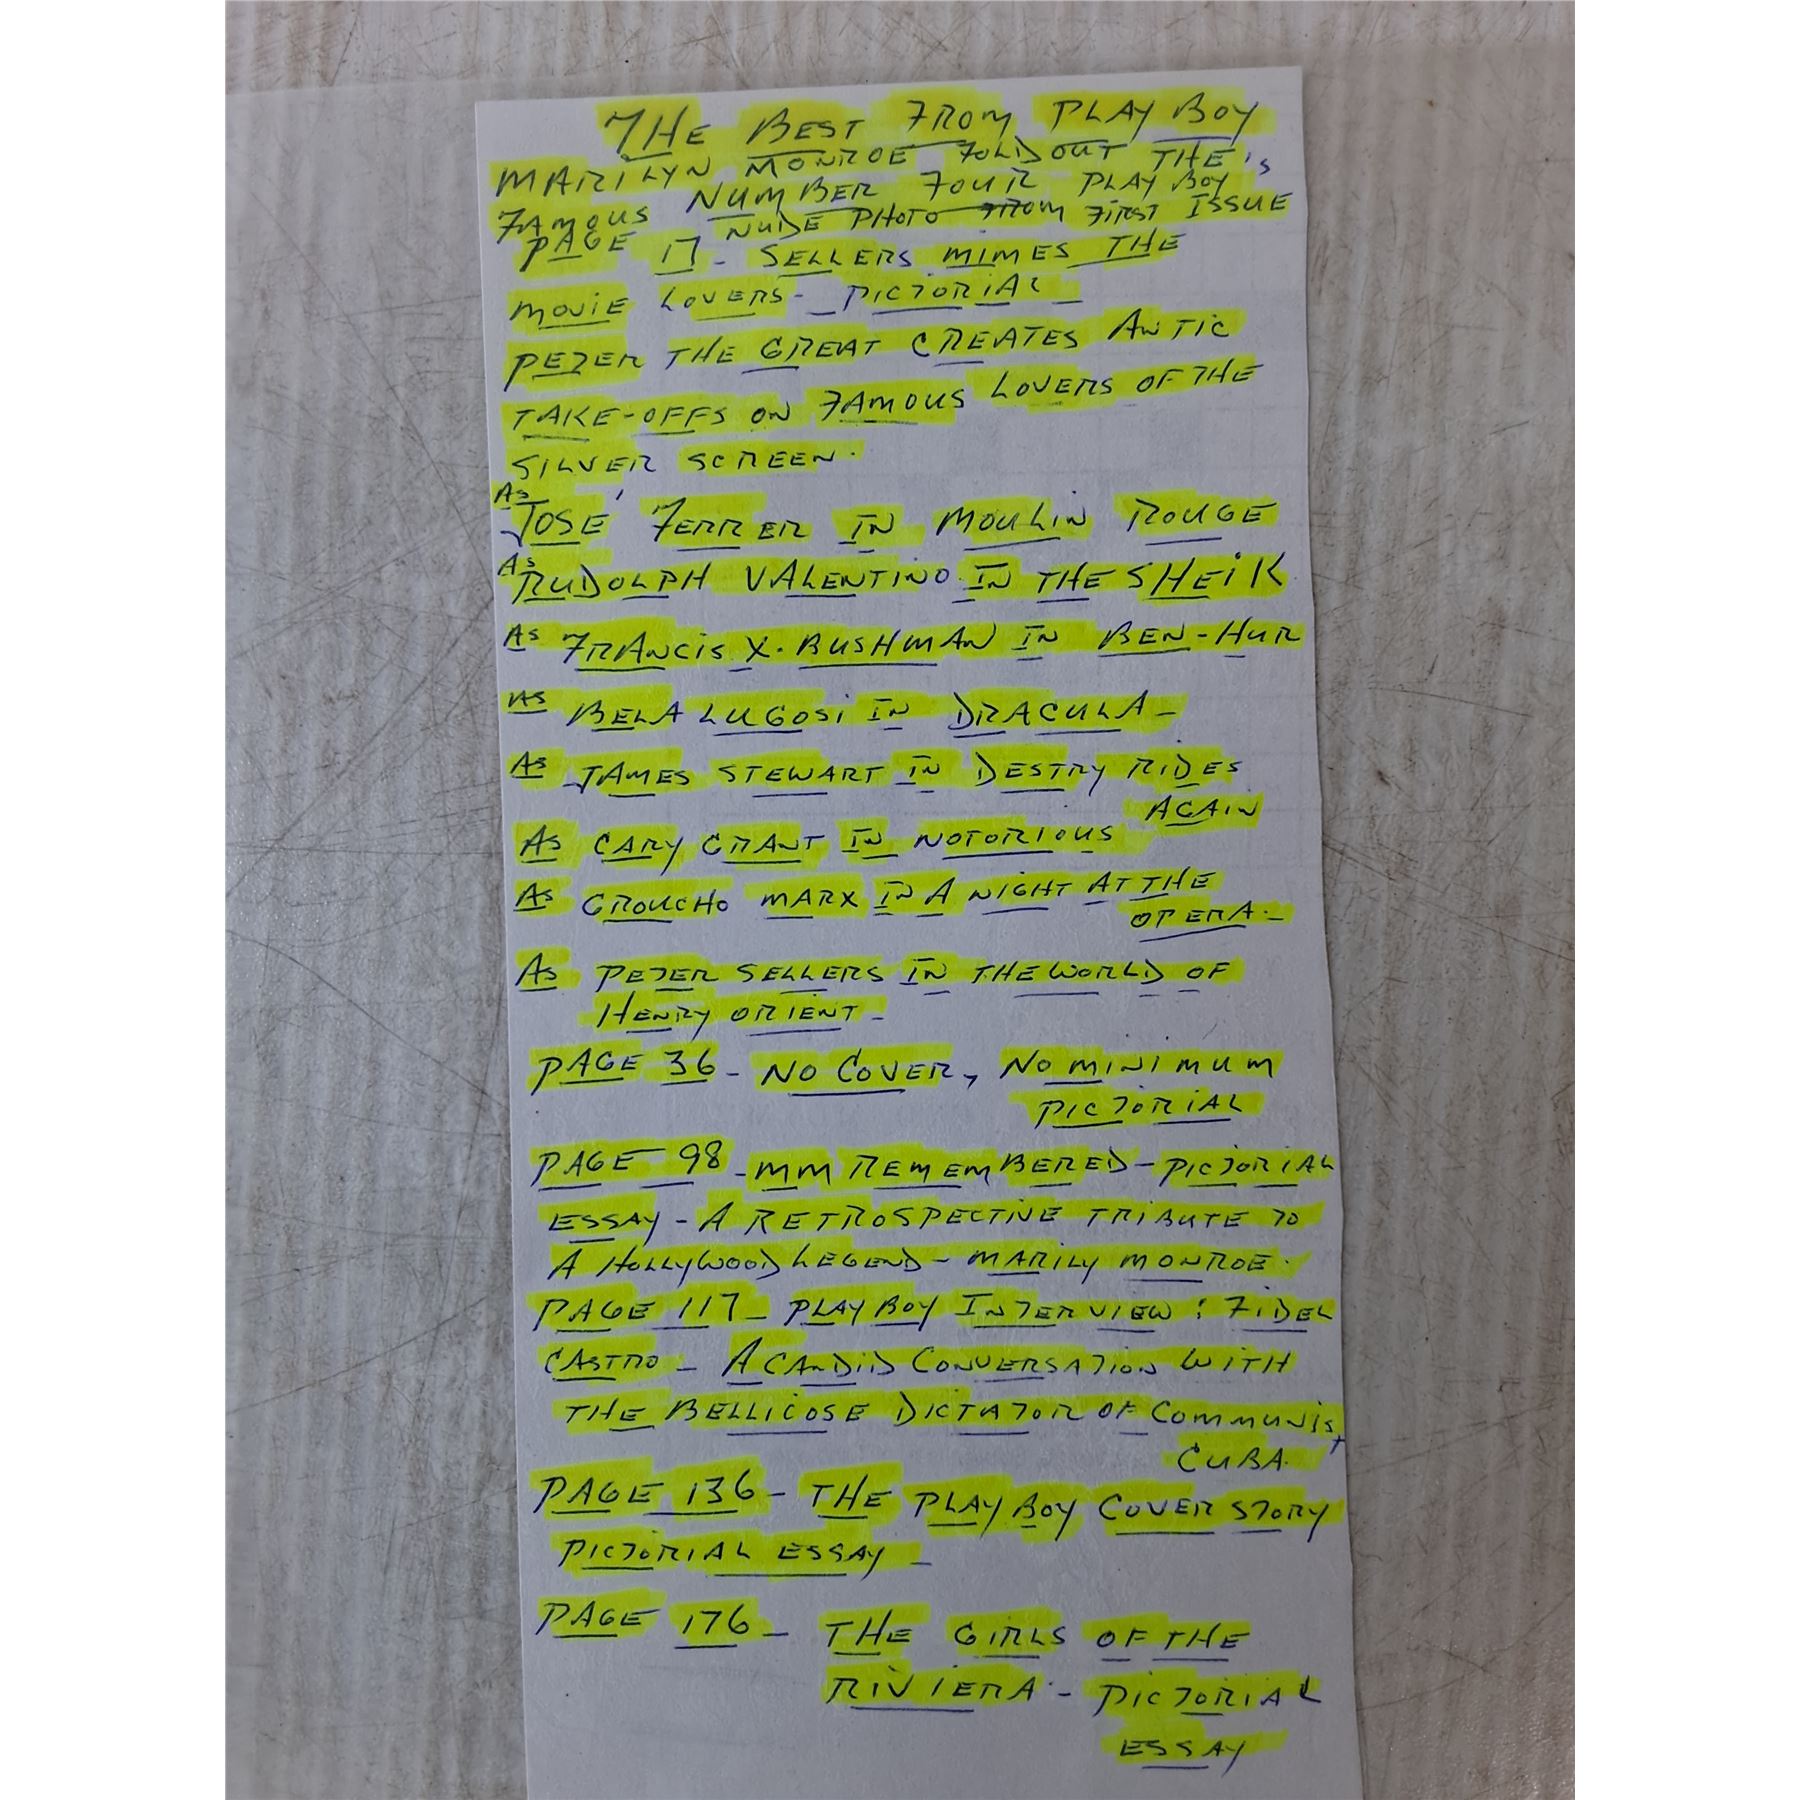 THE BEST FROM PLAYBOY
MARILYN MONROE FOLDOUT THE
FAMOUS NUMBER FOUR PLAYBOY'S
NUDE PHOTO FROM FIRST ISSUE
PAGE 17 - SELLERS MIMES THE
MOVIE LOVERS - PICTORIAL
PETER THE GREAT CREATES ANTIC
TAKE-OFFS ON FAMOUS LOVERS OF THE
SILVER SCREEN.
AS JOSÉ FERRER IN MOULIN ROUGE
AS RUDOLPH VALENTINO IN THE SHEIK
AS FRANCIS X. BUSHMAN IN BEN-HUR
AS BELA LUGOSI IN DRACULA -
AS JAMES STEWART IN DESTRY RIDES
AGAIN
AS CARY GRANT IN NOTORIOUS
AS GROUCHO MARX IN A NIGHT AT THE
OPERA. -
AS PETER SELLERS IN THE WORLD OF
HENRY ORIENT -
PAGE 36 - NO COVER, NO MINIMUM
PICTORIAL
PAGE 98 - MM REMEMBERED - PICTORIAL
ESSAY - A RETROSPECTIVE TRIBUTE TO
A HOLLYWOOD LEGEND - MARILY MONROE.
PAGE 117 - PLAYBOY INTERVIEW : FIDEL
CASTRO - A CANDID CONVERSATION WITH
THE BELLICOSE DICTATOR OF COMMUNIST
CUBA.
PAGE 136 - THE PLAYBOY COVER STORY
PICTORIAL ESSAY -
PAGE 176 - THE GIRLS OF THE
RIVIERA. - PICTORIAL
ESSAY